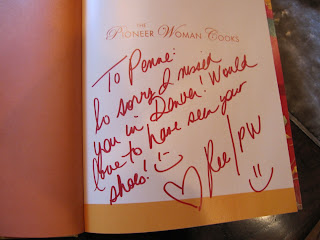 THE
PIONEER WOMAN COOKS
To Penne:
So sorry I missed
you in Denver! Would
love to have seen your
shoes!
Ree/PW